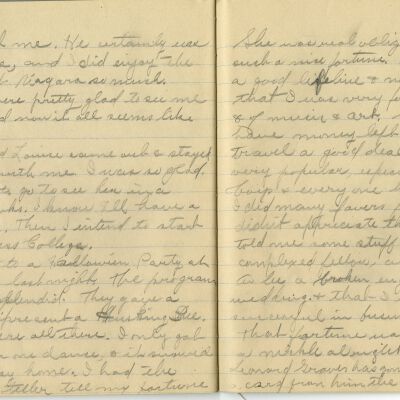 me. He certainly was
, and I did enjoy the
Niagara so much.
were pretty glad to see me
d now it all seems like
d Louise came out & stayed
with me. I was so glad.
to go to see her in a
ks. I know I'll have a
. Then I intend to start
ess College.
to a Hallowien Party at
last night. The program
splendid. They gave a
represent a Husking Bee.
ere all there. I only got
one dance, & it
y home. I had the
teller tell my fortune
She was real oblig
such a nice fortune.
a good lifeline & m
that I was very fo
& of music & art.
have money left
travel a good deal
very popular, espec
boys & every one
I did many favors f
didn't appreciate th
told me some stuff
complexed fellow, a
to be a broken en
wedding & that I
successful in busin
that fortune wa
a
Leonard Groves has gon
card from him the